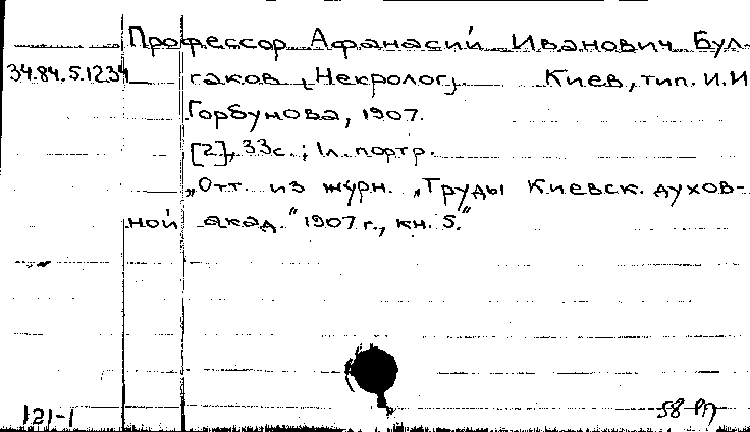 Профессор Афанасий Иванович Бул-
34.84.5.1234 гаков [Некролог] Киев, тип. И.И
Горбунова, 1907.
[2], 33с.; 1л. портр.
„Отт. из журн. „Труды Киевск. духов-
ной акад." 1907 г., кн. 5."
121-1 58-РП